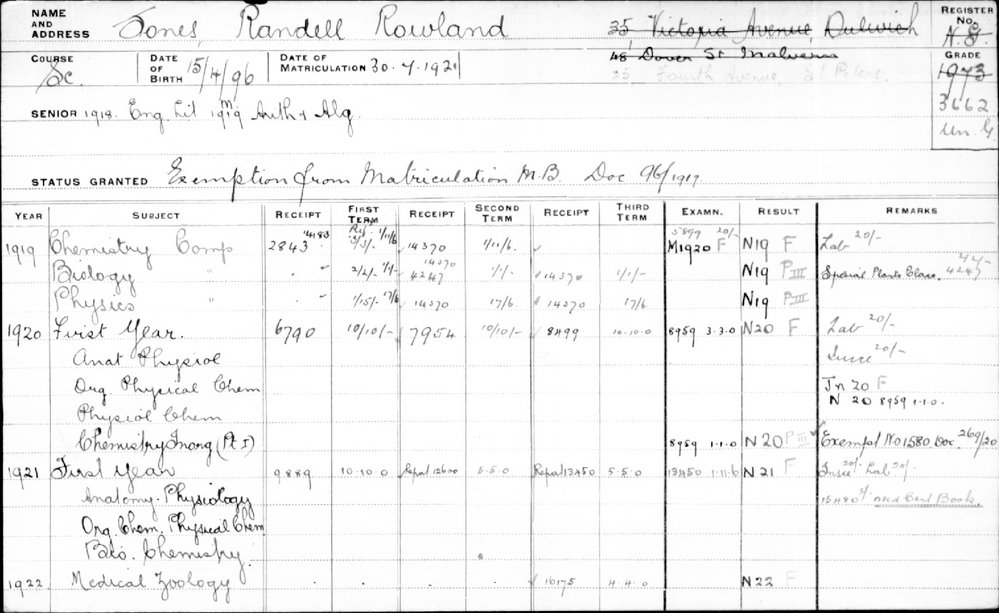 NAME AND ADDRESS Jones, Randell Rowland 35, Victoria Avenue, Dulwich REGISTER No. N.G.
48 Dover St Malvern
25, Fourth Avenue, St. Peters
COURSE Sc. DATE OF BIRTH 15/4/96 DATE OF MATRICULATION 30.7.1921 GRADE 1973
3662
Un. G
SENIOR 1918. Eng. Lit 1919 Arith & Alg.
STATUS GRANTED Exemption from Matriculation M.B. Doc 96/1917.
YEAR SUBJECT RECEIPT FIRST TERM RECEIPT SECOND TERM RECEIPT THIRD TERM EXAMN. RESULT REMARKS
1919 Chemistry Comp 2843 3/3/- 14370 1/11/6 M1920 F N19 F Lab 20/-
Biology " 2/2/- 1/1/- 14370 4247 1/1/- 14370 1/1/- N19 P III Special Plants Class. 2/2/- 4247
Physics " 1/15/- 17/6 14370 17/6 14370 17/6 N19 P III
1920 First Year. 6790 10/10/- 7954 10/10/- 8499 10.10.0 8959 3.3.0 N20 F Lab 20/-
Anat Physiol June 20/-
Org. Physical Chem Jn 20 F
N 20 8959 1.1.0.
Physiol Chem
Chemistry Inorg (Pt I) 8959 1.1.0 N20 P III Exempt No 1580 Doc 269/20
1921 First Year 9889 10.10.0 Repat 12600 5.5.0 Repat 13450 5.5.0 13450 1.11.6 N21 F Lab 20/-
Anatomy. Physiology 15480 Med Cert Book.
Org. Chem. Physical Chem
Bio. Chemistry
1922 Medical Zoology 16175 4.4.0 N22 F